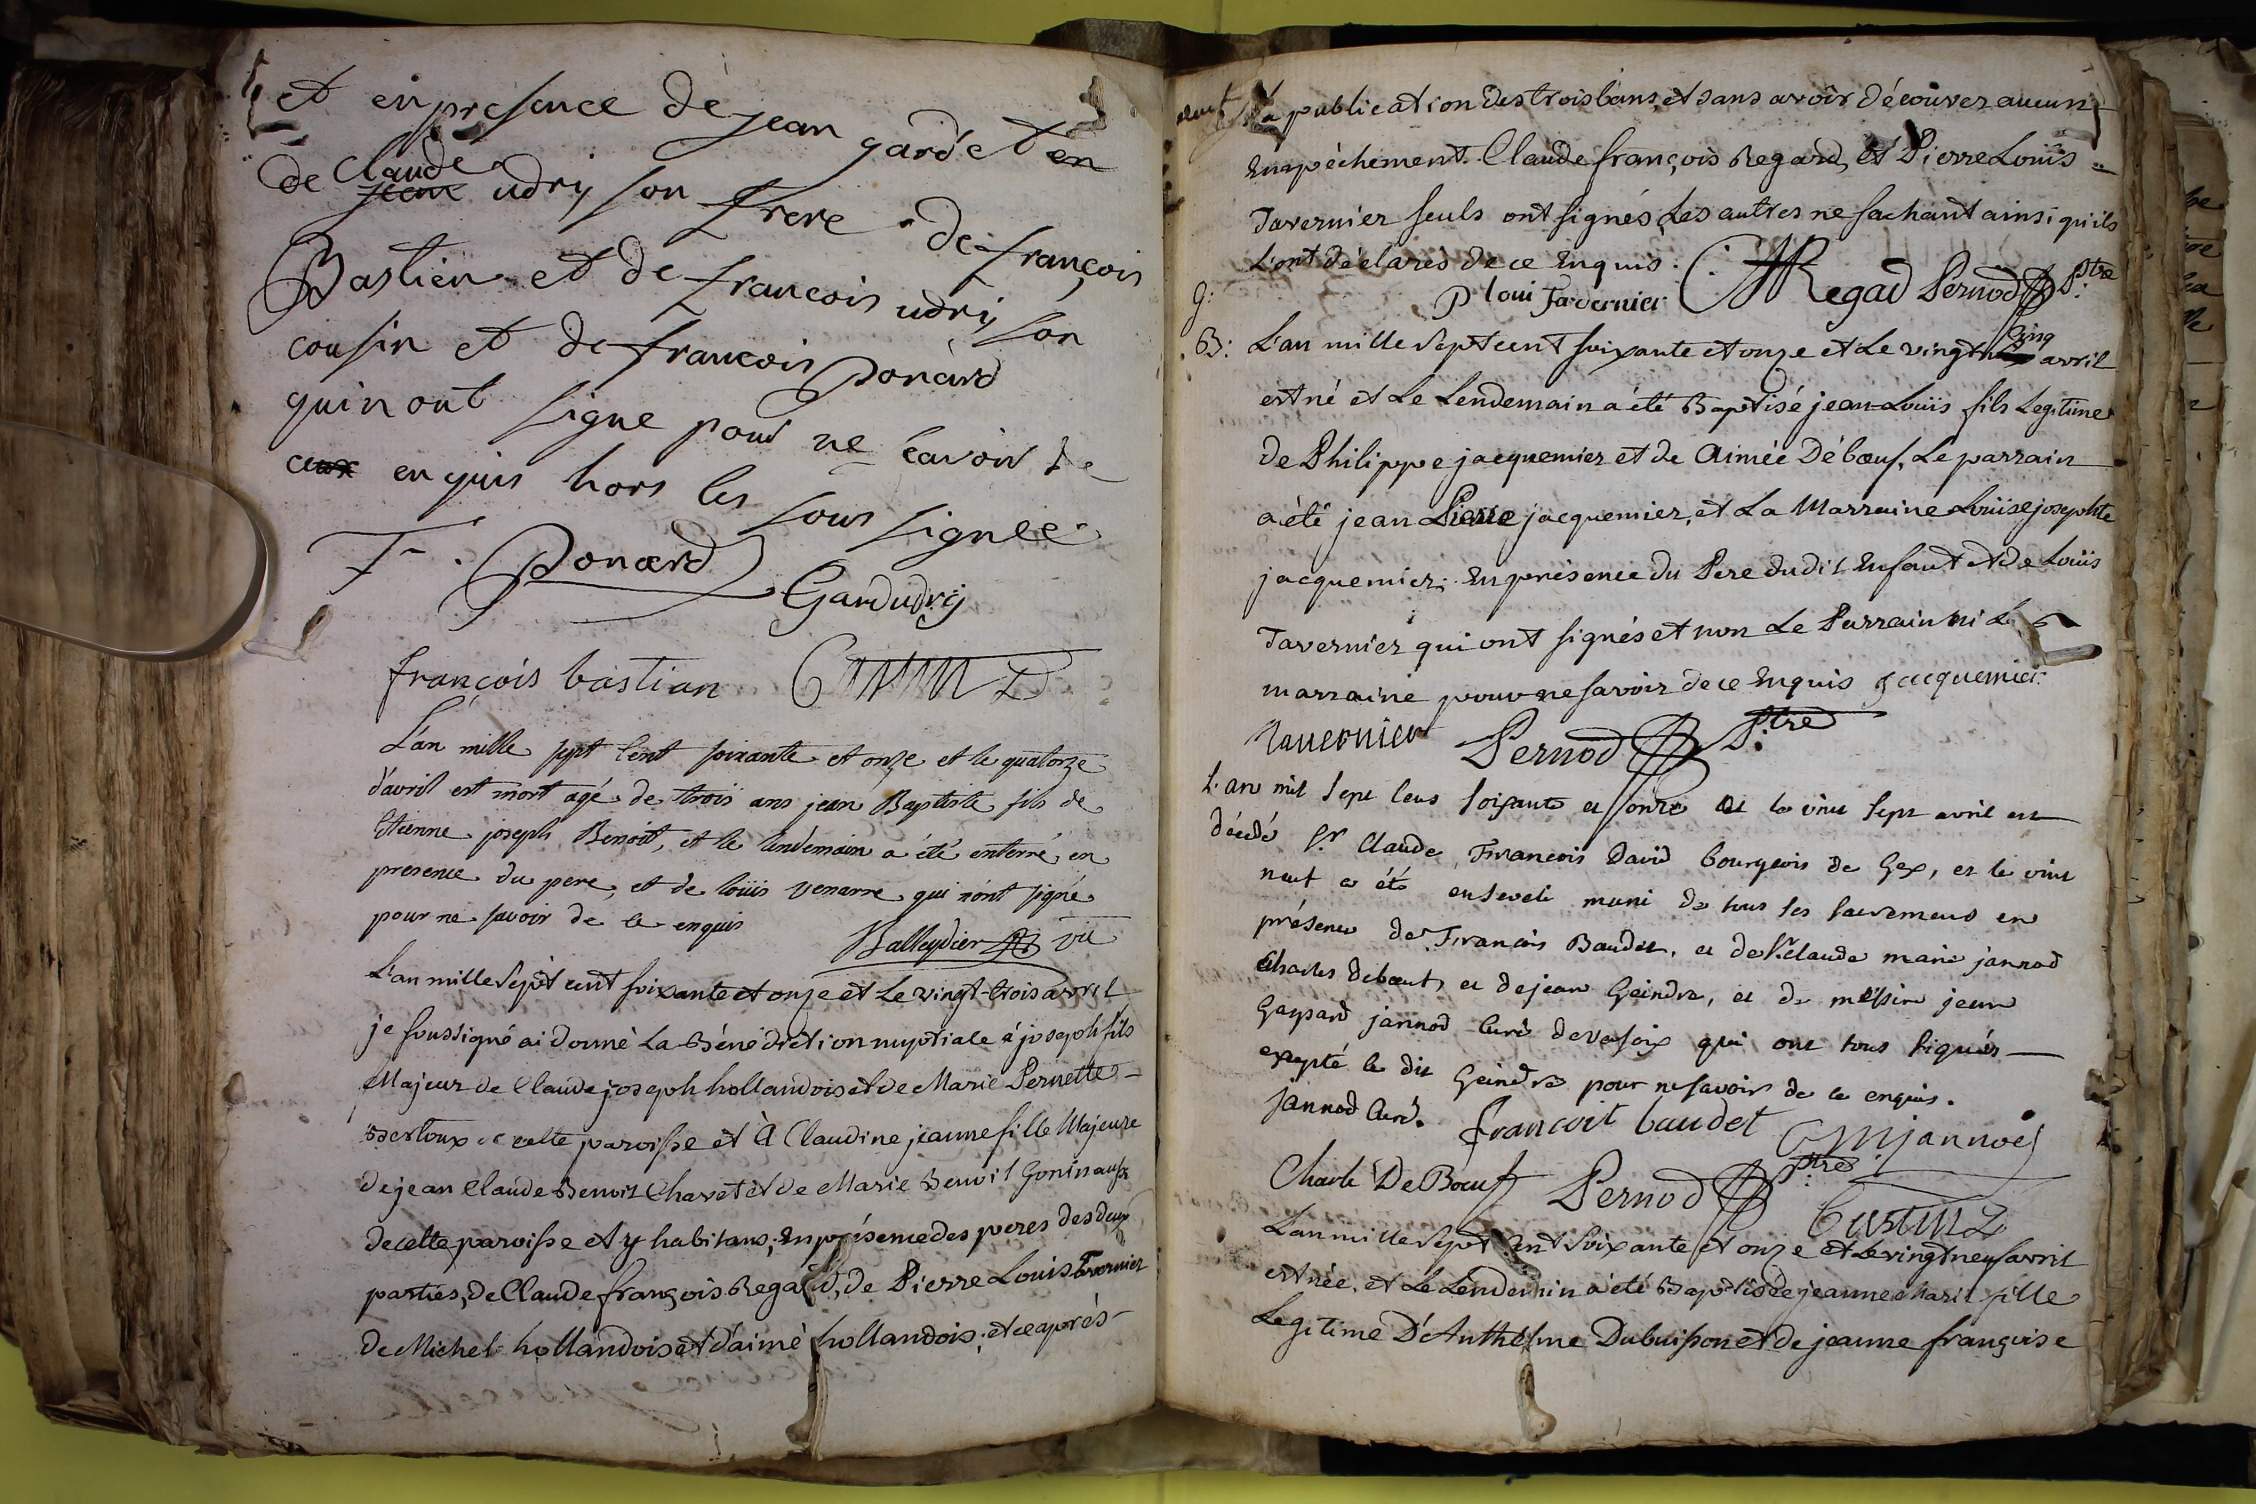 et en presence de jean gardet en
de Claude jean udrij son frere de françois
Bastien et de francois udrij son
cousin et de francois Ponard
qui nont signe pour ne scavoir de
ceux enquis hors les sous signee
F. Ponard
Gardudrij
françois bastian
L'an mille sept cent soixante et onze et le quatorze
d'avril est mort agé de troïs ans jean Baptiste fils de
Etienne joseph Benoit, et le lendemain a été enterré en
presence du pere, et de loüis venarre qui n'ont signé
pour ne savoir de ce enquis Balleydier vic
L'an mille Sept cent soixante et onze et Le vingt-trois avril
je soussigné ai donné La Bénédiction nuptiale à joseph fils
Majeur de Claude joseph hollandois et de Marie Pernette
Bertoux de cette paroisse et À Claudine jeanne fille Majeure
de jean Claude Benoit Charet et de Marie Benoit Gonin aussi
de cette paroisse et y habitans; En présence des peres des deux
parties, de Claude françois Regard, de Pierre Louis Tavernier
de Michel hollandois et d'aimé hollandois; et ce après
La publication des trois bans, et sans avoir découvert aucun
Empêchement. Claude françois Regard, et Pierre Loüis
Tavernier seuls ont signés, Les autres ne sachant ainsi qu'ils
L'ont déclarés de ce Enquis. C f Regad Pernod Ptre
P loui Tavernier
g:
B: L'an mille Sept cent soixante et onze et Le vingt cinq avril
est né et Le Lendemain a été Baptisé jean-Loüis fils Legitime
de Philippe jacquemier et de Aimée Débœuf, Le parrain
a été jean Pierre jacquemier, et La Marraine Loüise josephte
jacquemier; En présence du Pere dudit Enfant et de Loüis
Tavernier qui ont signés et non Le Parrain ni La
marraine pour ne savoir de ce Enquis jacquemier
Tavernier Pernod Ptre
L'an mil sept cens soixante et onze et le vint sept avril est
décédé Sr Claude François David bourgeois de Gex, et le vint
neuf a été enseveli muni de tous ses sacremens en
présence de François Baudet, et de Sr Claude marie jannod
Charles debœuf, et de jean Geindre, et de messire jean
Gaspard jannod curé de Vesoix qui ont tous signés
excepté le dit Geindre pour ne savoir de ce enquis.
jannod curé. francoit baudet CM jannod
Charle De Bœuf Pernod Ptre
L'an mille Sept Cent soixante et onze et Le vingt neuf avril
est née, et Le Lendemain a été Baptisée jeanne Marie fille
Legitime D'Anthelme Dubuisson et de jeanne françoise